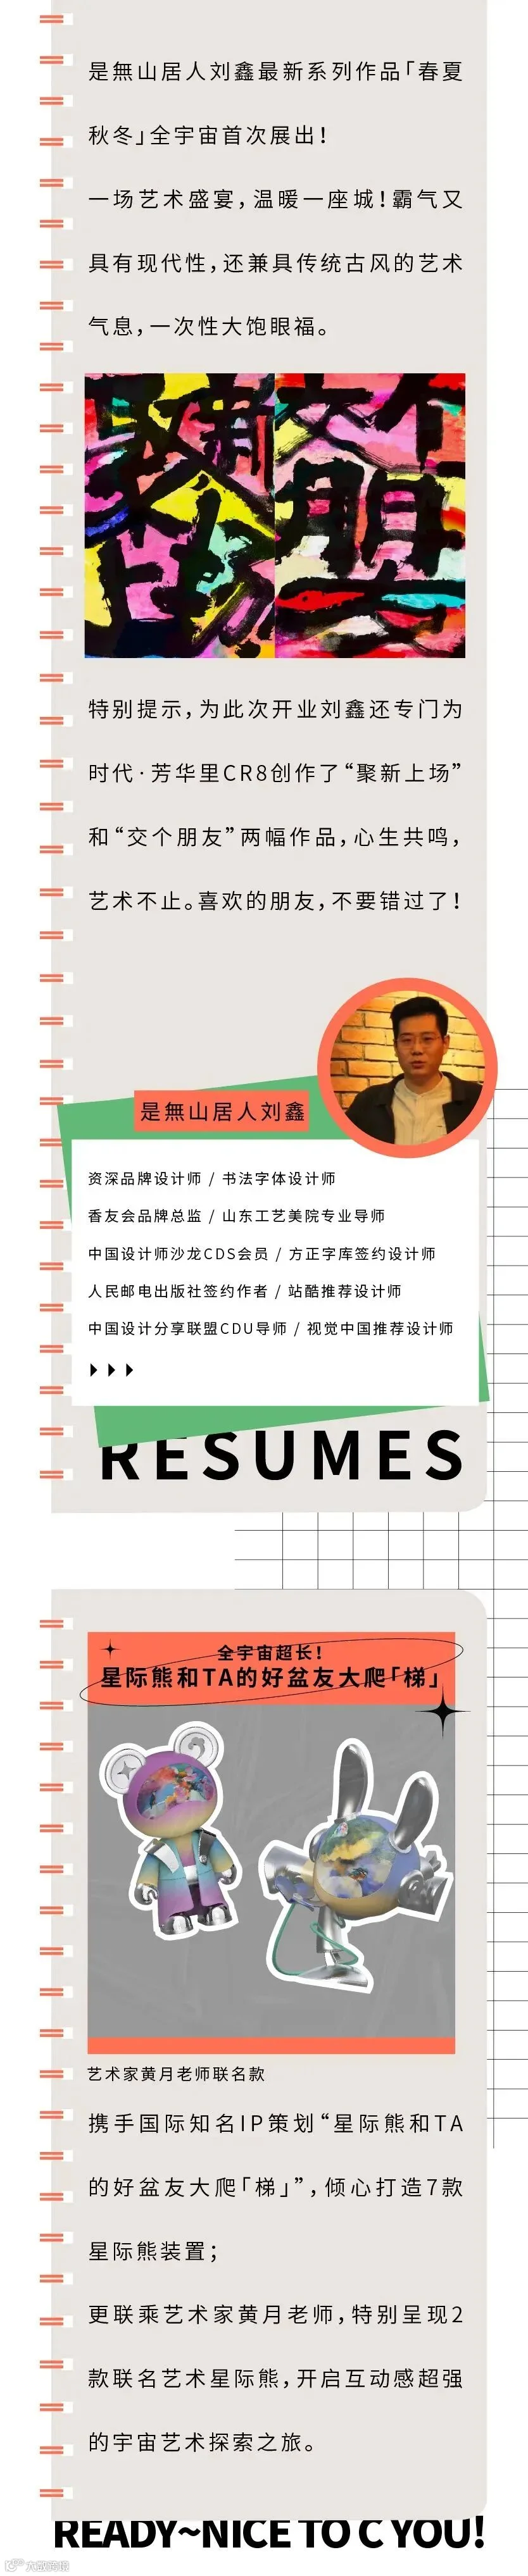 是無山居人刘鑫最新系列作品「春夏
秋冬」全宇宙首次展出！
一场艺术盛宴，温暖一座城！霸气又
具有现代性，还兼具传统古风的艺术
气息，一次性大饱眼福。
聚新
上场
交个
朋
友
特别提示，为此次开业刘鑫还专门为
时代·芳华里CR8创作了“聚新上场”
和“交个朋友”两幅作品，心生共鸣，
艺术不止。喜欢的朋友，不要错过了！
是無山居人刘鑫
资深品牌设计师 / 书法字体设计师
香友会品牌总监 / 山东工艺美院专业导师
中国设计师沙龙CDS会员 / 方正字库签约设计师
人民邮电出版社签约作者 / 站酷推荐设计师
中国设计分享联盟CDU导师 / 视觉中国推荐设计师
RESUMES
全宇宙超长！
星际熊和TA的好盆友大爬「梯」
艺术家黄月老师联名款
携手国际知名IP策划“星际熊和TA
的好盆友大爬「梯」”，倾心打造7款
星际熊装置；
更联乘艺术家黄月老师，特别呈现2
款联名艺术星际熊，开启互动感超强
的宇宙艺术探索之旅。
READY~NICE TO C YOU!